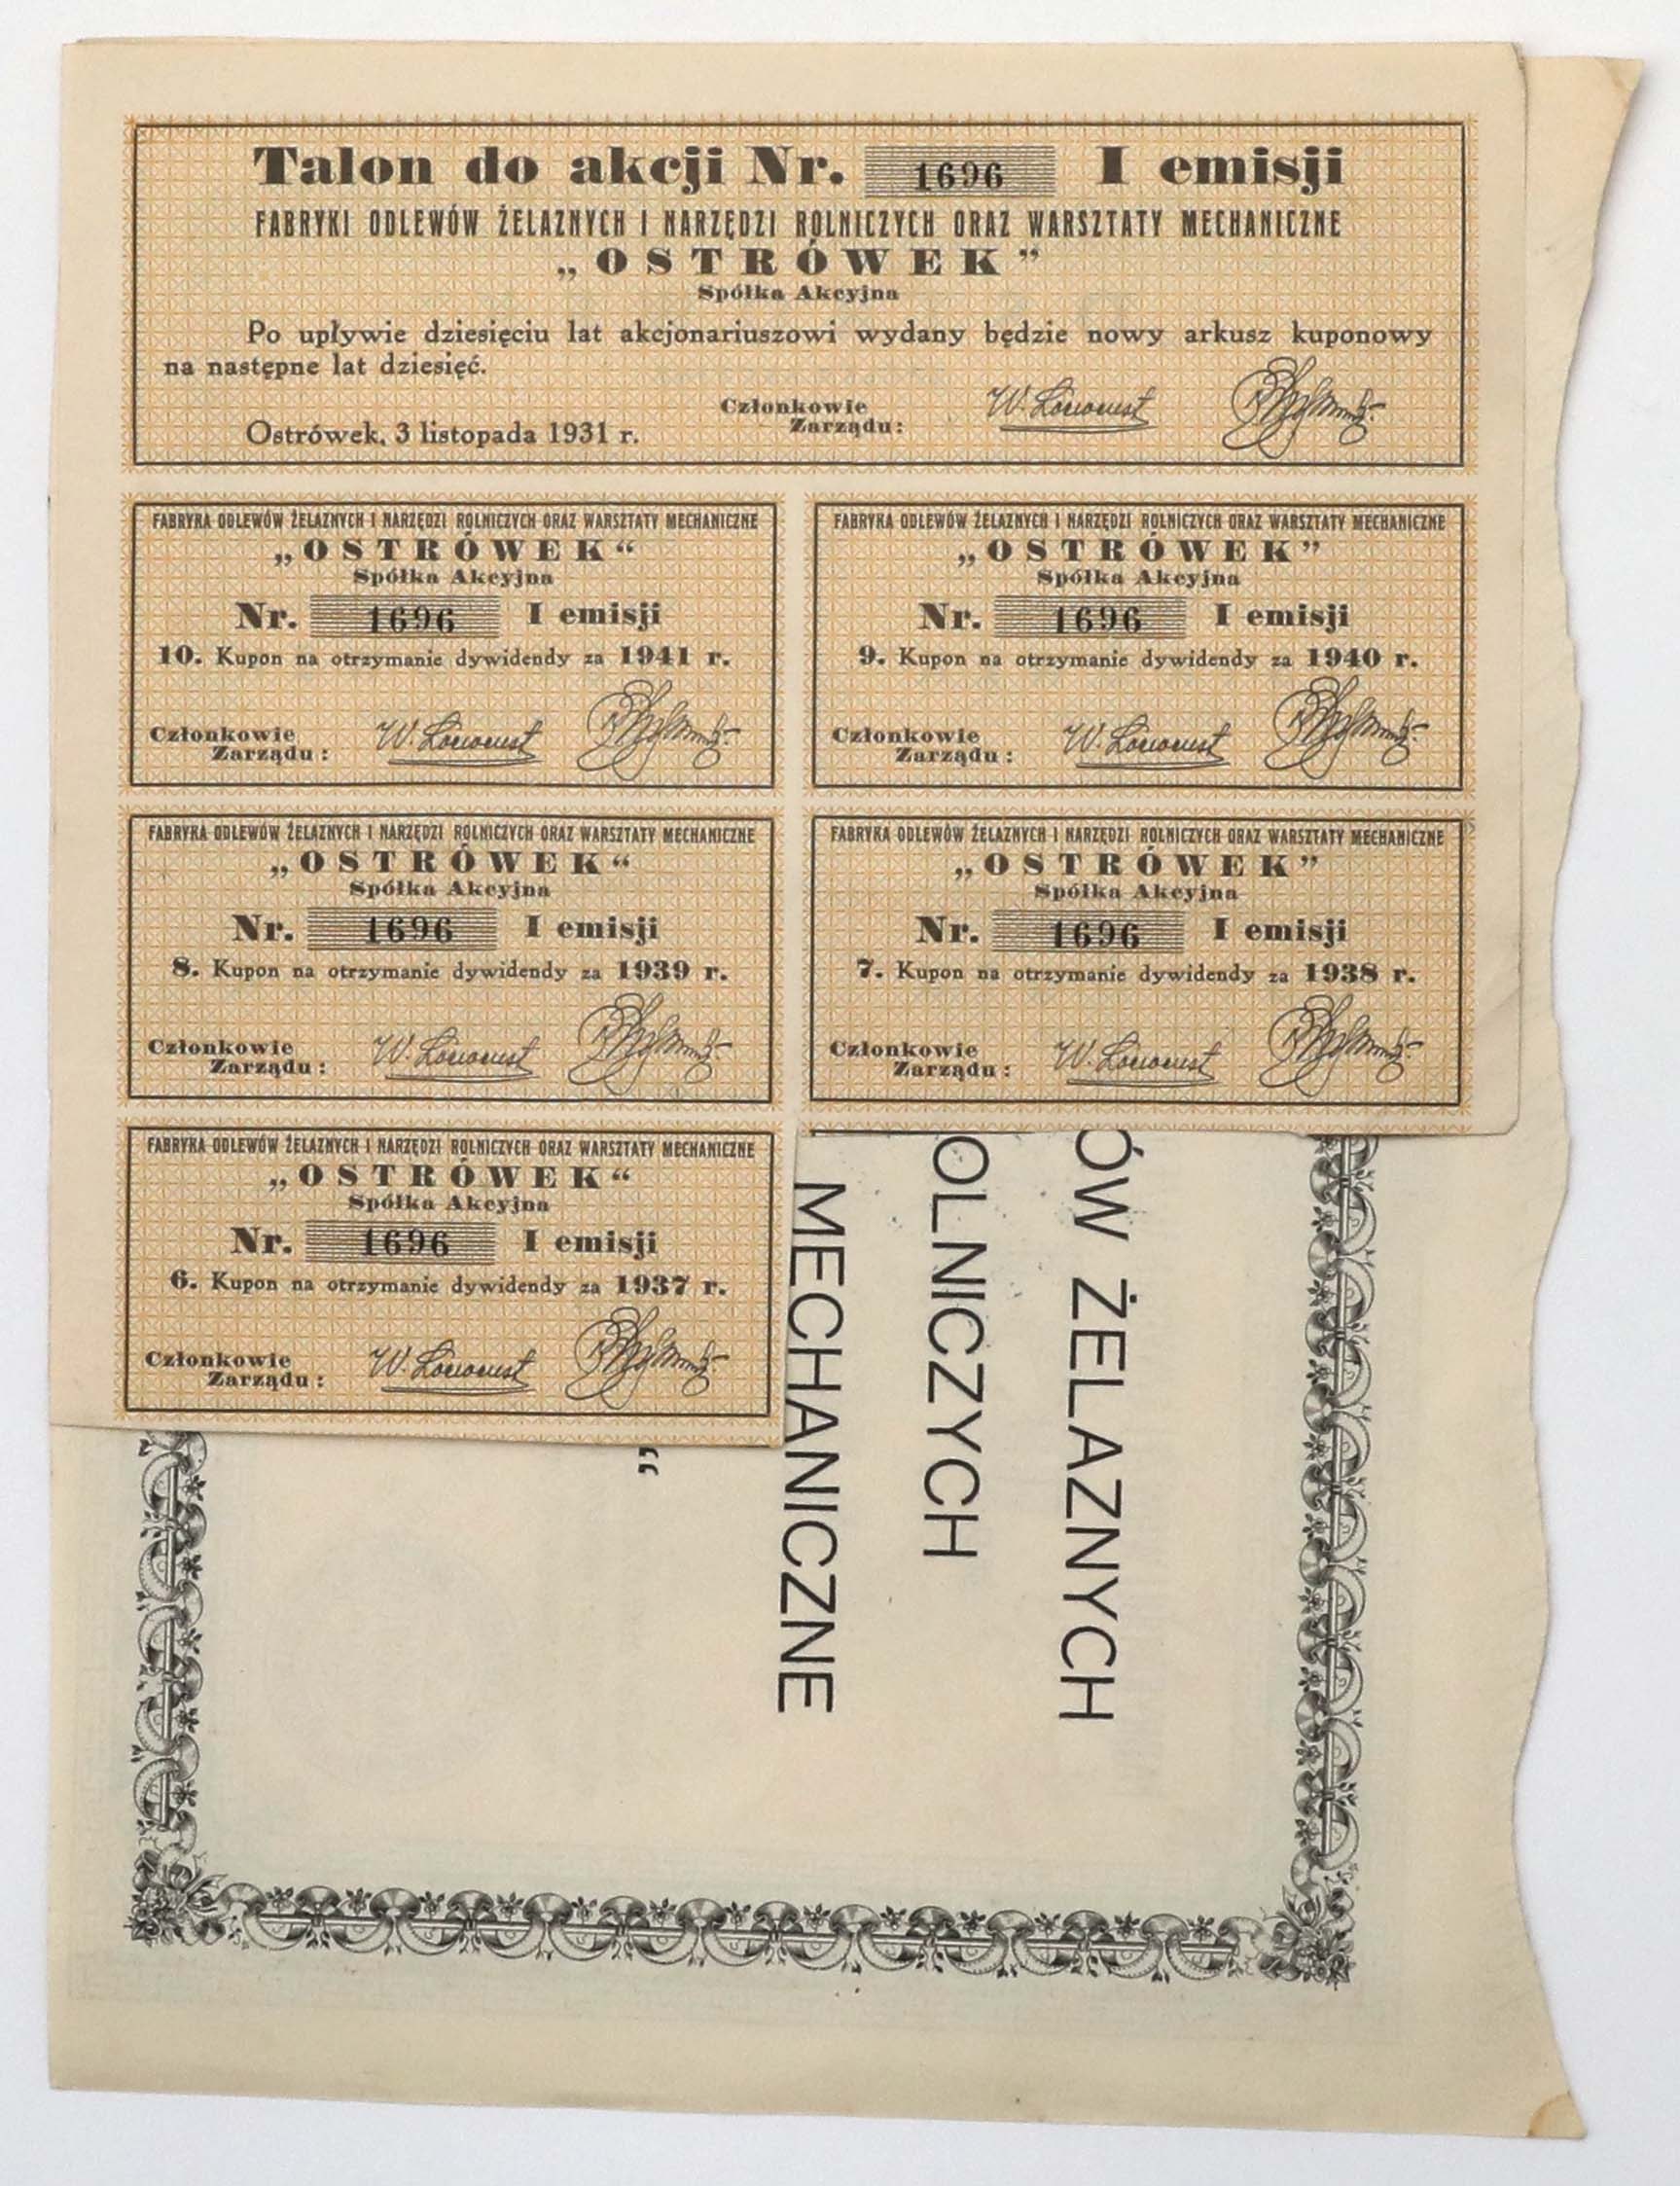 Talon do akcji Nr. 1696 I emisji
FABRYKI ODLEWÓW ŻELAZNYCH I NARZĘDZI ROLNICZYCH ORAZ WARSZTATY MECHANICZNE
„OSTRÓWEK”
Spółka Akcyjna
Po upływie dziesięciu lat akcjonariuszowi wydany będzie nowy arkusz kuponowy
na następne lat dziesięć.
Ostrówek, 3 listopada 1931 r.
Członkowie
Zarządu:
FABRYKA ODLEWÓW ŻELAZNYCH I NARZĘDZI ROLNICZYCH ORAZ WARSZTATY MECHANICZNE
„OSTRÓWEK“
Spółka Akcyjna
Nr. 1696 I emisji
10. Kupon na otrzymanie dywidendy za 1941 r.
Członkowie
Zarządu:
FABRYKA ODLEWÓW ŻELAZNYCH I NARZĘDZI ROLNICZYCH ORAZ WARSZTATY MECHANICZNE
„OSTRÓWEK”
Spółka Akcyjna
Nr. 1696 I emisji
9. Kupon na otrzymanie dywidendy za 1940 r.
Członkowie
Zarządu:
FABRYKA ODLEWÓW ŻELAZNYCH I NARZĘDZI ROLNICZYCH ORAZ WARSZTATY MECHANICZNE
„OSTRÓWEK“
Spółka Akcyjna
Nr. 1696 I emisji
8. Kupon na otrzymanie dywidendy za 1939 r.
Członkowie
Zarządu:
FABRYKA ODLEWÓW ŻELAZNYCH I NARZĘDZI ROLNICZYCH ORAZ WARSZTATY MECHANICZNE
„OSTRÓWEK”
Spółka Akcyjna
Nr. 1696 I emisji
7. Kupon na otrzymanie dywidendy za 1938 r.
Członkowie
Zarządu:
FABRYKA ODLEWÓW ŻELAZNYCH I NARZĘDZI ROLNICZYCH ORAZ WARSZTATY MECHANICZNE
„OSTRÓWEK“
Spółka Akcyjna
Nr. 1696 I emisji
6. Kupon na otrzymanie dywidendy za 1937 r.
Członkowie
Zarządu:
ÓW ŻELAZNYCH
OLNICZYCH
MECHANICZNE
”